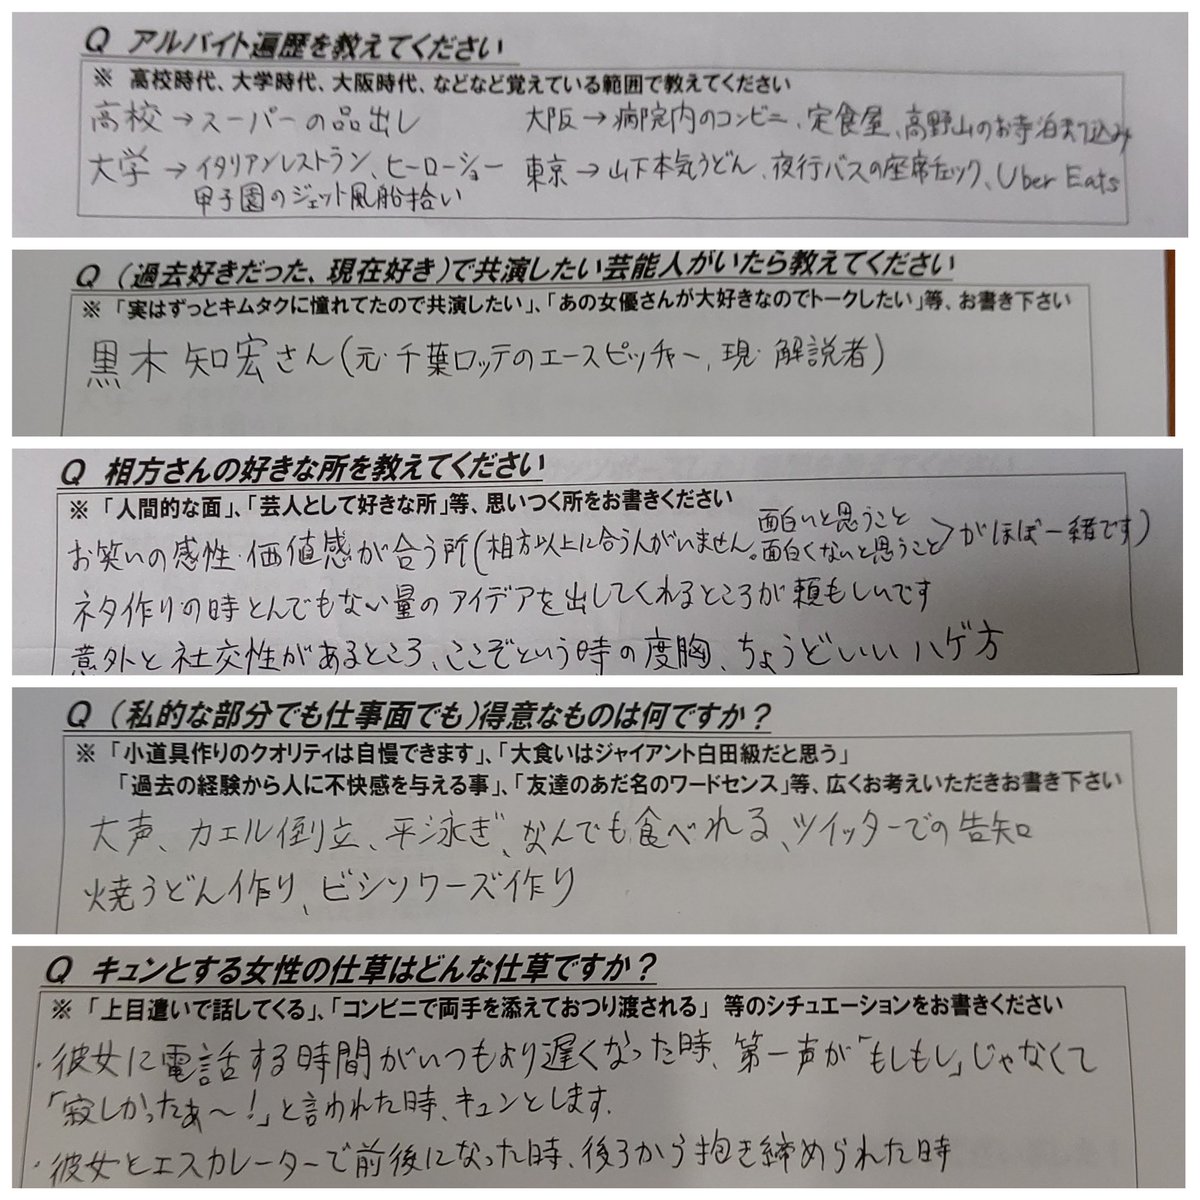 Q アルバイト遍歴を教えてください
※ 高校時代、大学時代、大阪時代、などなど覚えている範囲で教えてください
高校→スーパーの品出し
大学→イタリアンレストラン、ヒーローショー
甲子園のジェット風船拾い
大阪→病院内のコンビニ、定食屋、高野山のお寺泊まり込み
東京→山下本気うどん、夜行バスの座席チェック、Uber Eats
Q (過去好きだった、現在好き)で共演したい芸能人がいたら教えてください
※ 「実はずっとキムタクに憧れてたので共演したい」、「あの女優さんが大好きなのでトークしたい」等、お書き下さい
黒木 知宏さん(元・千葉ロッテのエースピッチャー、現・解説者)
Q 相方さんの好きな所を教えてください
※ 「人間的な面」、「芸人として好きな所」等、思いつく所をお書きください
お笑いの感性・価値感が合う所(相方以上に合う人がいません。面白いと思うこと
面白くないと思うこと>がほぼ一緒です)
ネタ作りの時とんでもない量のアイデアを出してくれるところが頼もしいです
意外と社交性があるところ、ここぞという時の度胸、ちょうどいいハゲ方
Q (私的な部分でも仕事面でも)得意なものは何ですか?
※ 「小道具作りのクオリティは自慢できます」、「大食いはジャイアント白田級だと思う」
「過去の経験から人に不快感を与える事」、「友達のあだ名のワードセンス」等、広くお考えいただきお書き下さい
大声、カエル倒立、平泳ぎ、なんでも食べれる、ツイッターでの告知
焼うどん作り、ビシソワーズ作り
Q キュンとする女性の仕草はどんな仕草ですか?
※ 「上目遣いで話してくる」、「コンビニで両手を添えておつり渡される」 等のシチュエーションをお書きください
・彼女に電話する時間がいつもより遅くなった時、第一声が「もしもし」じゃなくて
「寂しかったぁ〜!」と言われた時、キュンとします。
・彼女とエスカレーターで前後になった時、後ろから抱き締められた時